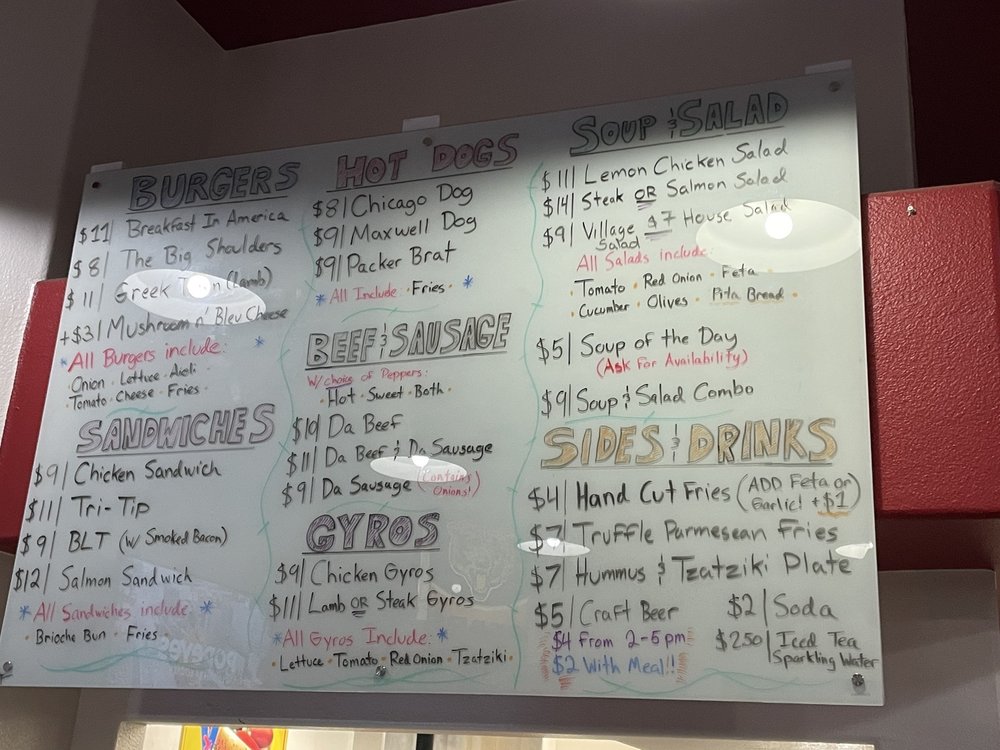 BURGERS
$11| Breakfast In America
$8| The Big Shoulders
$11| Greek Town (Lamb)
+$3| Mushroom n' Bleu Cheese
*All Burgers include: *
Onion · Lettuce · Aioli ·
· Tomato · Cheese · Fries ·
SANDWICHES
$9| Chicken Sandwich
$11| Tri-Tip
$9| BLT (w/ Smoked Bacon)
$12| Salmon Sandwich
*All Sandwiches include: *
· Brioche Bun · Fries ·
HOT DOGS
$8| Chicago Dog
$9| Maxwell Dog
$9| Packer Brat
*All Include · Fries · *
BEEF & SAUSAGE
W/ choice of Peppers:
· Hot · Sweet · Both ·
$10| Da Beef
$11| Da Beef & Da Sausage
$9| Da Sausage (Contains Onions!)
GYROS
$9| Chicken Gyros
$11| Lamb OR Steak Gyros
*All Gyros Include: *
· Lettuce · Tomato · Red Onion · Tzatziki ·
SOUP & SALAD
$11| Lemon Chicken Salad
$14| Steak OR Salmon Salad
$9| Village Salad $7 House Salad
All Salads include:
· Tomato · Red Onion · Feta
· Cucumber · Olives · Pita Bread ·
$5| Soup of the Day
(Ask For Availability)
$9| Soup & Salad Combo
SIDES & DRINKS
$4| Hand Cut Fries (ADD Feta or Garlic! +$1)
$7| Truffle Parmesean Fries
$7| Hummus & Tzatziki Plate
$5| Craft Beer
$4 From 2-5pm
$2 With Meal!!
$2| Soda
$2.50| Iced Tea
Sparkling Water
POPEYES